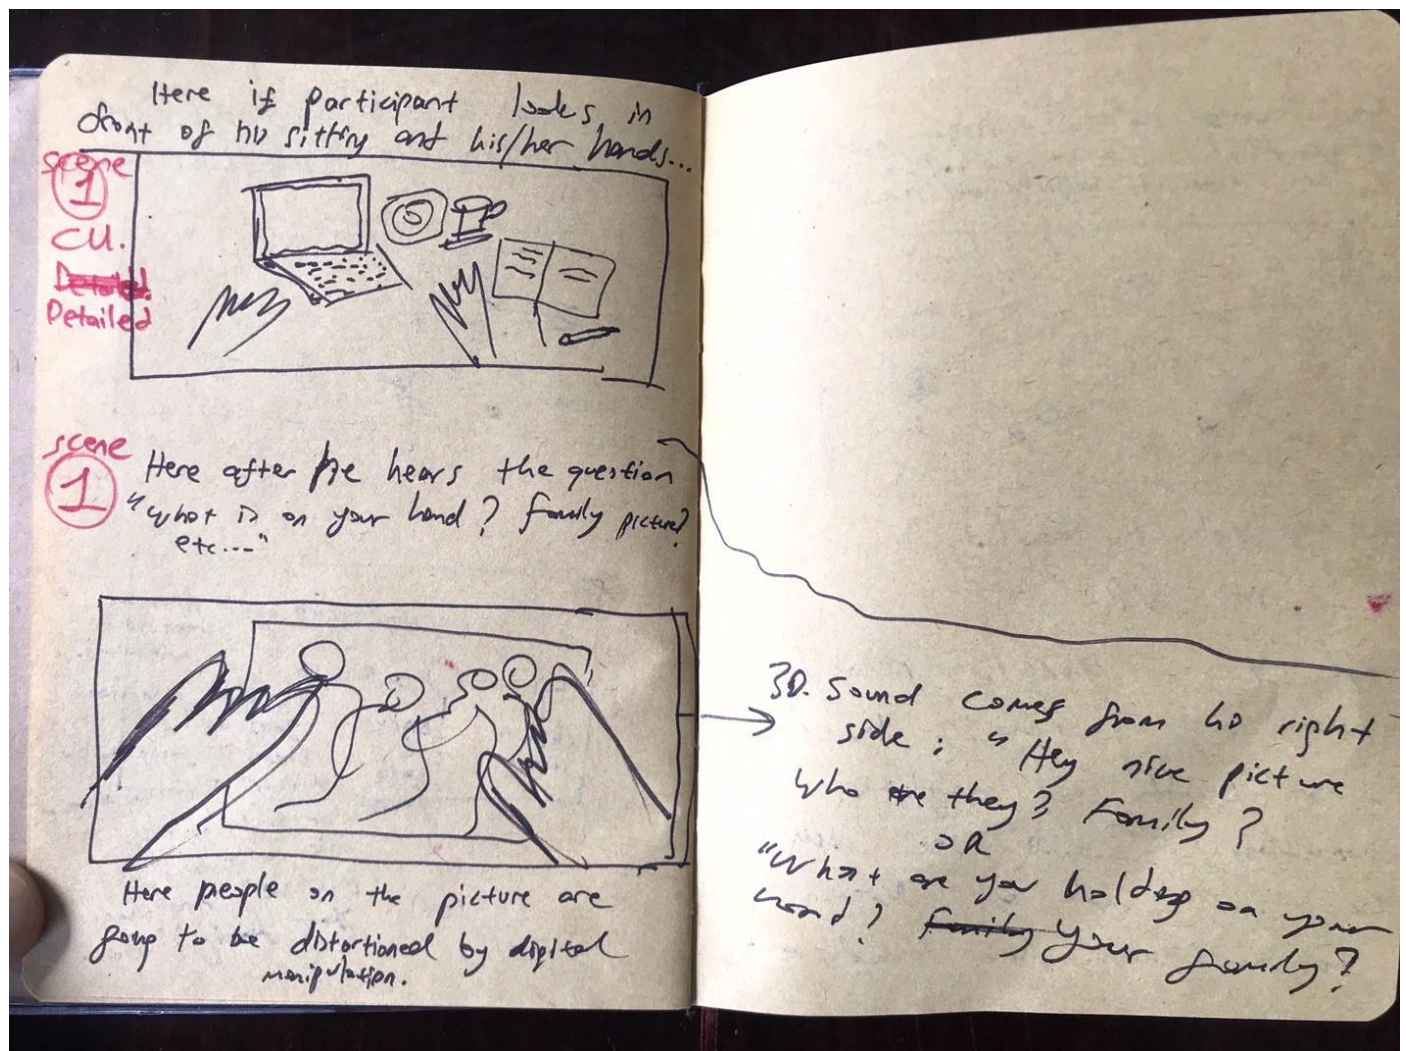 Here if participant looks in
front of his sitting and his/her hands...
scene
1
CU.
Detailed
Detailed
scene
1
Here after he hears the question
"what is on your hand? Family picture?
etc..."
Here people on the picture are
going to be distortioned by digital
manipulation.
3D. Sound comes from his right
side: "Hey nice picture
who are they? Family?
OR
"What are you holding on your
hand? Family Your family?